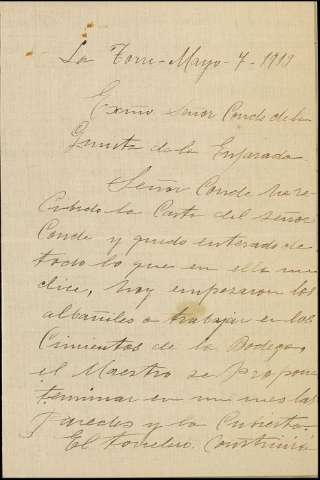 La Torre - Mayo - 7 - 1913
Exmo señor Conde de la
Quinta de la Enjarada
Señor Conde he re
cibido la Carta del señor
Conde y quedo enterado de
todo lo que en ella me
dice, hoy empezaron los
albañiles a trabajar en los
Cimientos de la Bodega,
el Maestro se propone
terminar en un mes las
Paredes y la Cubierta
El tonelero. Construirá